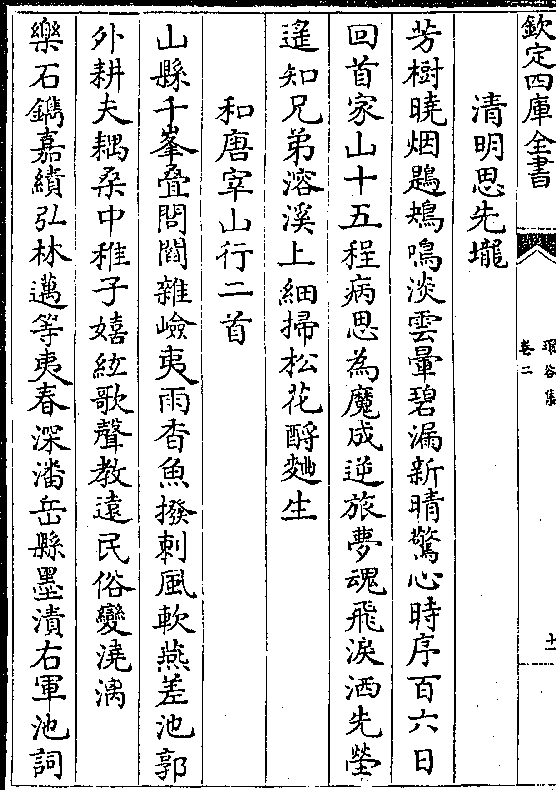 欽定四庫全書
瓢谷集
卷二
十一
清明思先壠
芳樹曉烟鶗鴂鳴淡雲暈碧漏新晴驚心時序百六日
回首家山十五程病思為魔成逆旅夢魂飛淚洒先塋
遥知兄弟溶溪上細掃松花酹麯生
和唐宰山行二首
山縣千峯叠閭閻雜嶮夷雨香魚撥刺風軟燕差池郭
外耕夫耦桑中稚子嬉絃歌聲教遠民俗變澆漓
樂石鐫嘉績弘林邁等夷春深潘岳縣墨漬右軍池詞